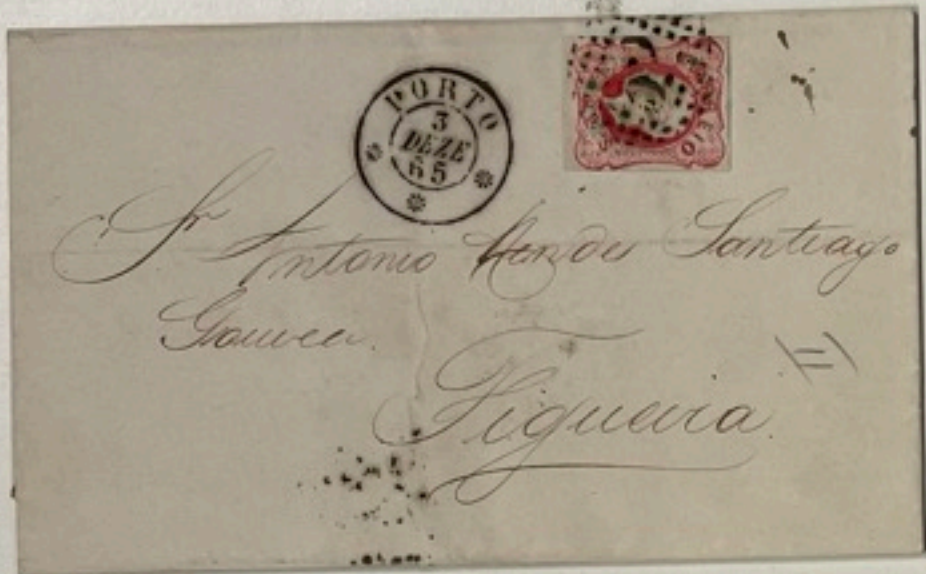 PORTO
3
DEZE
65
Sr Antonio Mendes Santiago
Gouvea.
Figueira